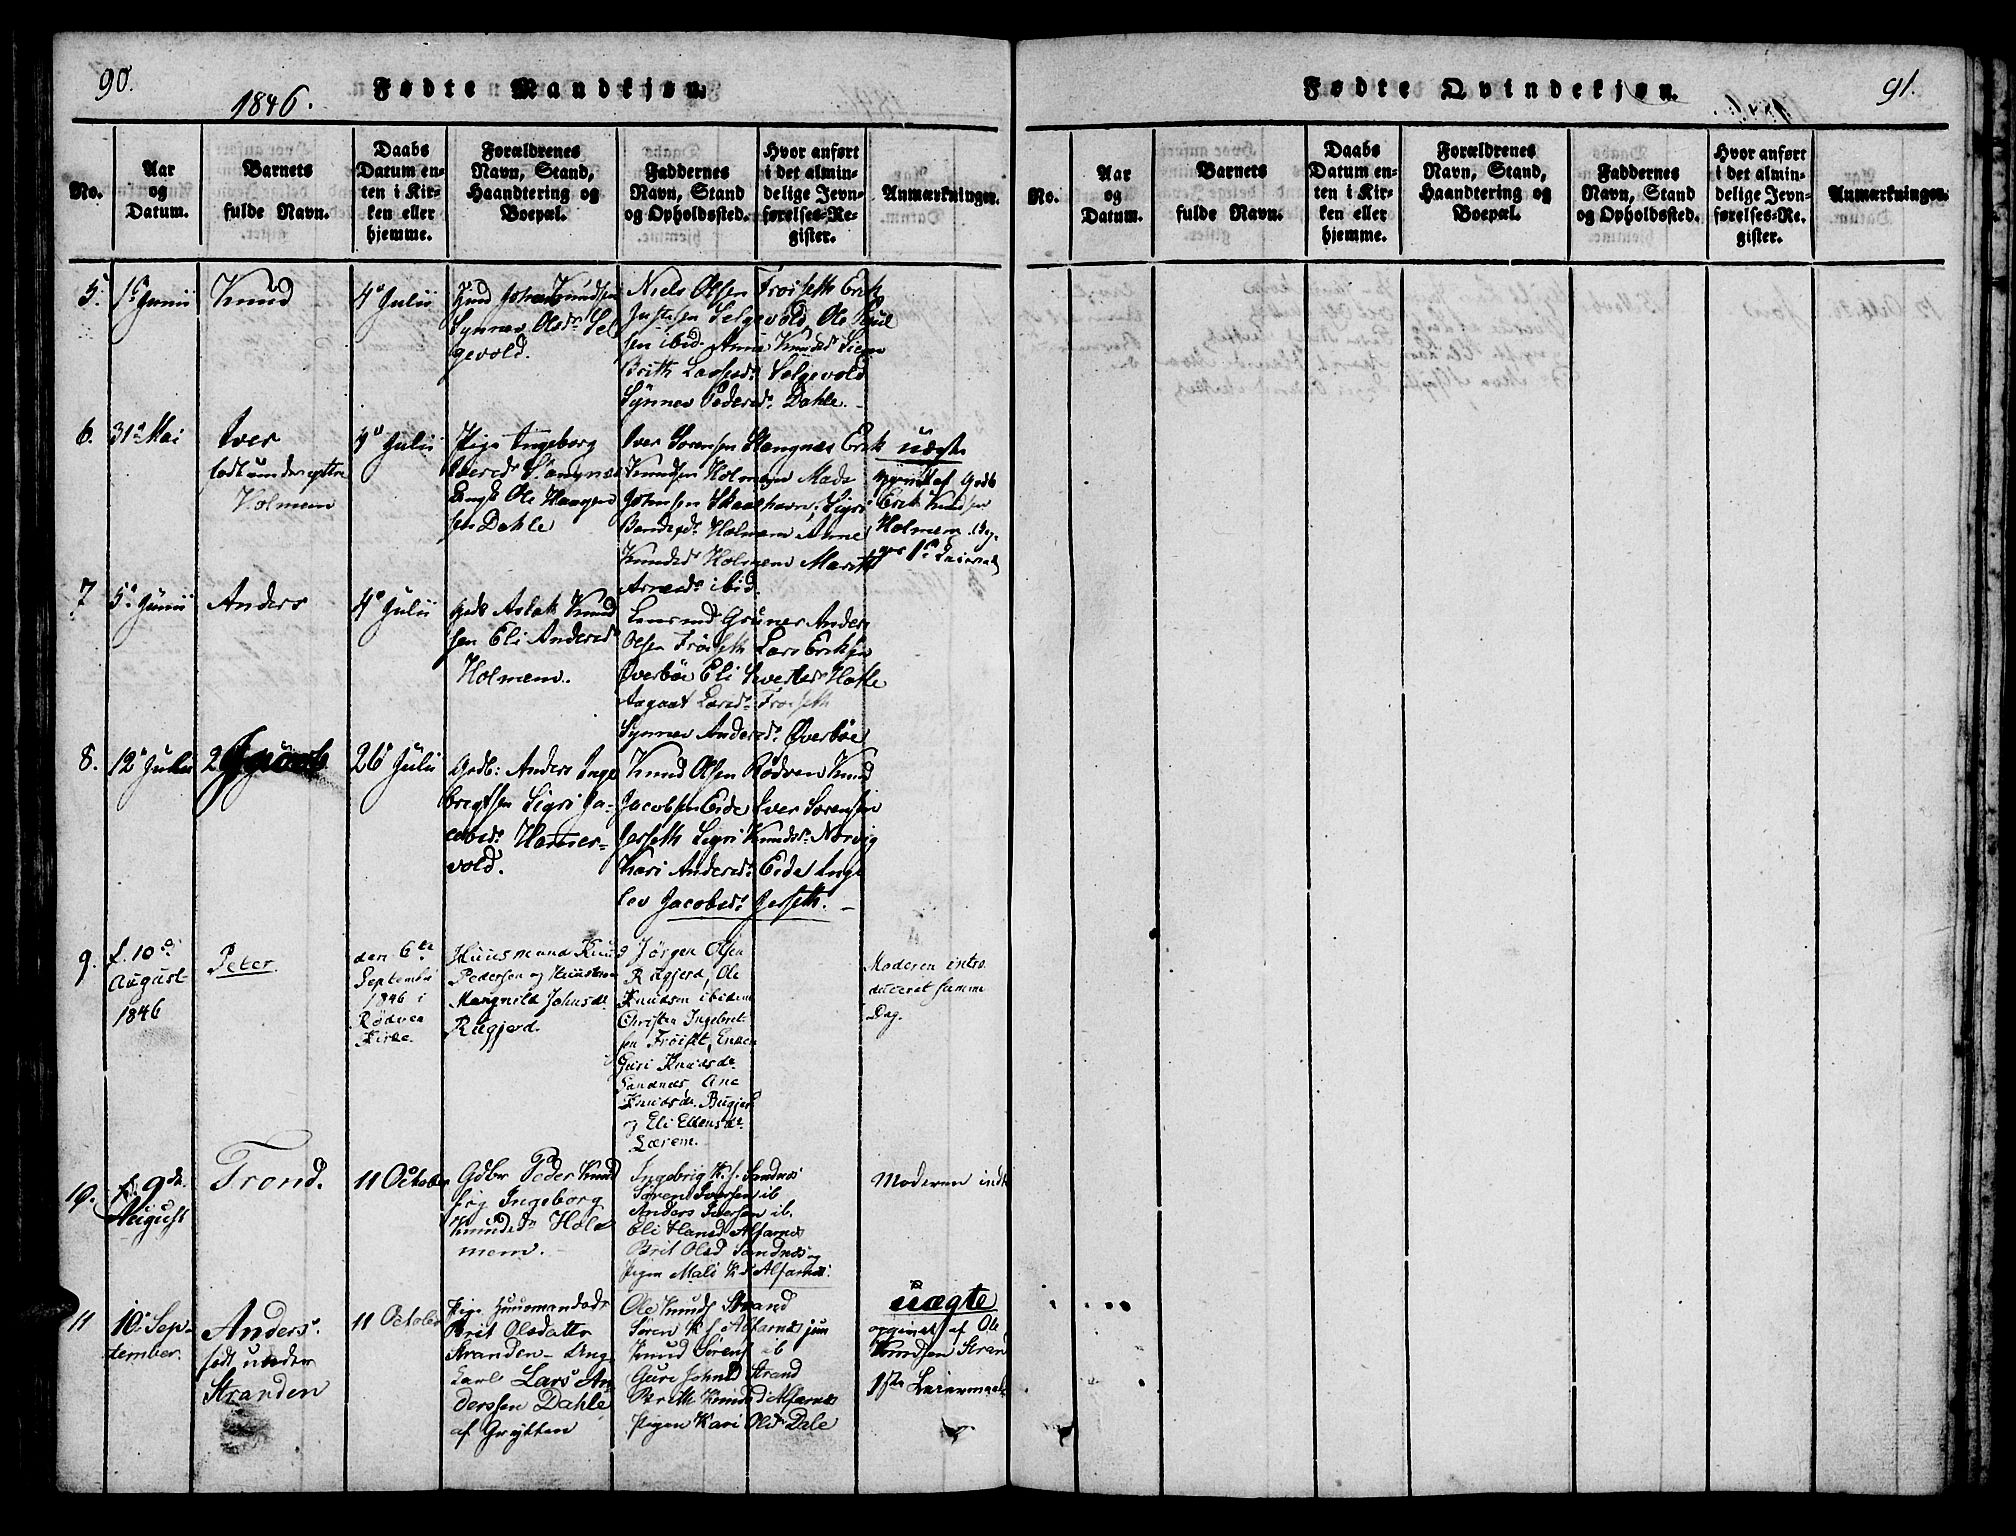 90.
1846.
Fødte Mandkjøn.
No.
Aar
og
Datum.
Barnets
fulde Navn.
Daabs
Datum en-
ten i Kir-
ken eller
hjemme.
Forældrenes
Navn, Stand,
Haandtering og
Boepæl.
Faddernes
Navn, Stand
og Opholdssted.
Hvor anført
i det almin-
delige Jevn-
førelses-Re-
gister.
Anmærkninger.
5.
1ste Junii
Knud
4de Julii
Knud Knudsen
Synnev Olsdr Sel
gevold.
Niels Olsen Frøiseth Erik
Selgevold, Ole Poul
sen ibid. Anne Knudsd
Brith Selgevold
Synnev Pedersdr Dahle.
6.
31te Mai
Iver
født under
Holmem
4de Julii
Pige Ingeborg
Iversdr
Ungk Ole Haagen
sen Dahle
Iver Sørensen Hangnæs Erik
Knudsen Holmem Mads
Johnsen Skaalhavn, Sigri
Holmem Anne
Knudsd Holmem Marith
Arnesdr ibid.
uægte
opgivet af Gdb
Erik Knudsen
Holmem
7
5te Junii
Anders
4de Julii
Gdb Aslak Knud
sen Eli Andersdr
Holmem.
Grüner Anders
Olsen Frøiseth Lars Eriksen
Øverbøe Eli Iversdr Hatle
Aagaat Larsdr Frøiseth
Synnev Andersdr Øverbøe
8.
12te Julii
26 Julii
Gdb: Anders Inge
brigtsen Sigri Ja-
cobsdr Hamer-
vold.
Knud Olsen Rødven Knud
Jacobsen Eide Iver Sørensen
Jerseth Sigri Knudsdr Norvig
Kari Andersdr Eide Inge
lev Jacobsdr Jerseth.
9.
f. 10de
August
1846
Peter
den 6te
September
1846 i
Rødven
Kirke.
Huusmand Knud
Pedersen og Huustroe
Margnild Johnsdr
Rugjerd.
Jørgen Olsen
Rugjerd, Ole
Knudsen ibidem
Christen Ingebret-
sen Frøiset, Enken
Guri Knudsdr
Sandnes, Ane
Knudsdr Rugjerd
og Eli Ellensdr
Lærem.
Moderen intro
duceret samme
Dag.
10.
f. 9de
August
Trond.
11 October
Gdbr Peder Knud
søg Ingeborg
Knudsdr Hol
mem.
Ingebrig K. s. Sandnæs
Søren Iversen ib
Anders Iversen ib.
Eli Hansd Alfarnæs
Brit Olsd Sandnæs og
Pigen Mali K d Alfarnæs.
Moderen indt
11
10de Sep-
tember.
Anders.
født under
Stranden
11 October
Pige Huusmandsdr
Brit Olsdatter
Stranden - Ung
karl Lars An
derssen Dahle
af Grytten
Ole Knuds Strand
Søren K s Alfarnæs jun
Knud Sørens ib
Guri Johnsd Strand
Berith Knudsd Alfarnæs
Pigen Kari Olsd Dale
uægte
opgivet af Ole
Knudsen Strand
1ste Leiermaal
91.
Fødte Qvindekjøn.
No.
Aar
og
Datum.
Barnets
fulde Navn.
Daabs
Datum en-
ten i Kir-
ken eller
hjemme.
Forældrenes
Navn, Stand,
Haandtering og
Boepæl.
Faddernes
Navn, Stand
og Opholdssted.
Hvor anført
i det almin-
delige Jevn-
førelses-Re-
gister.
Anmærkninger.